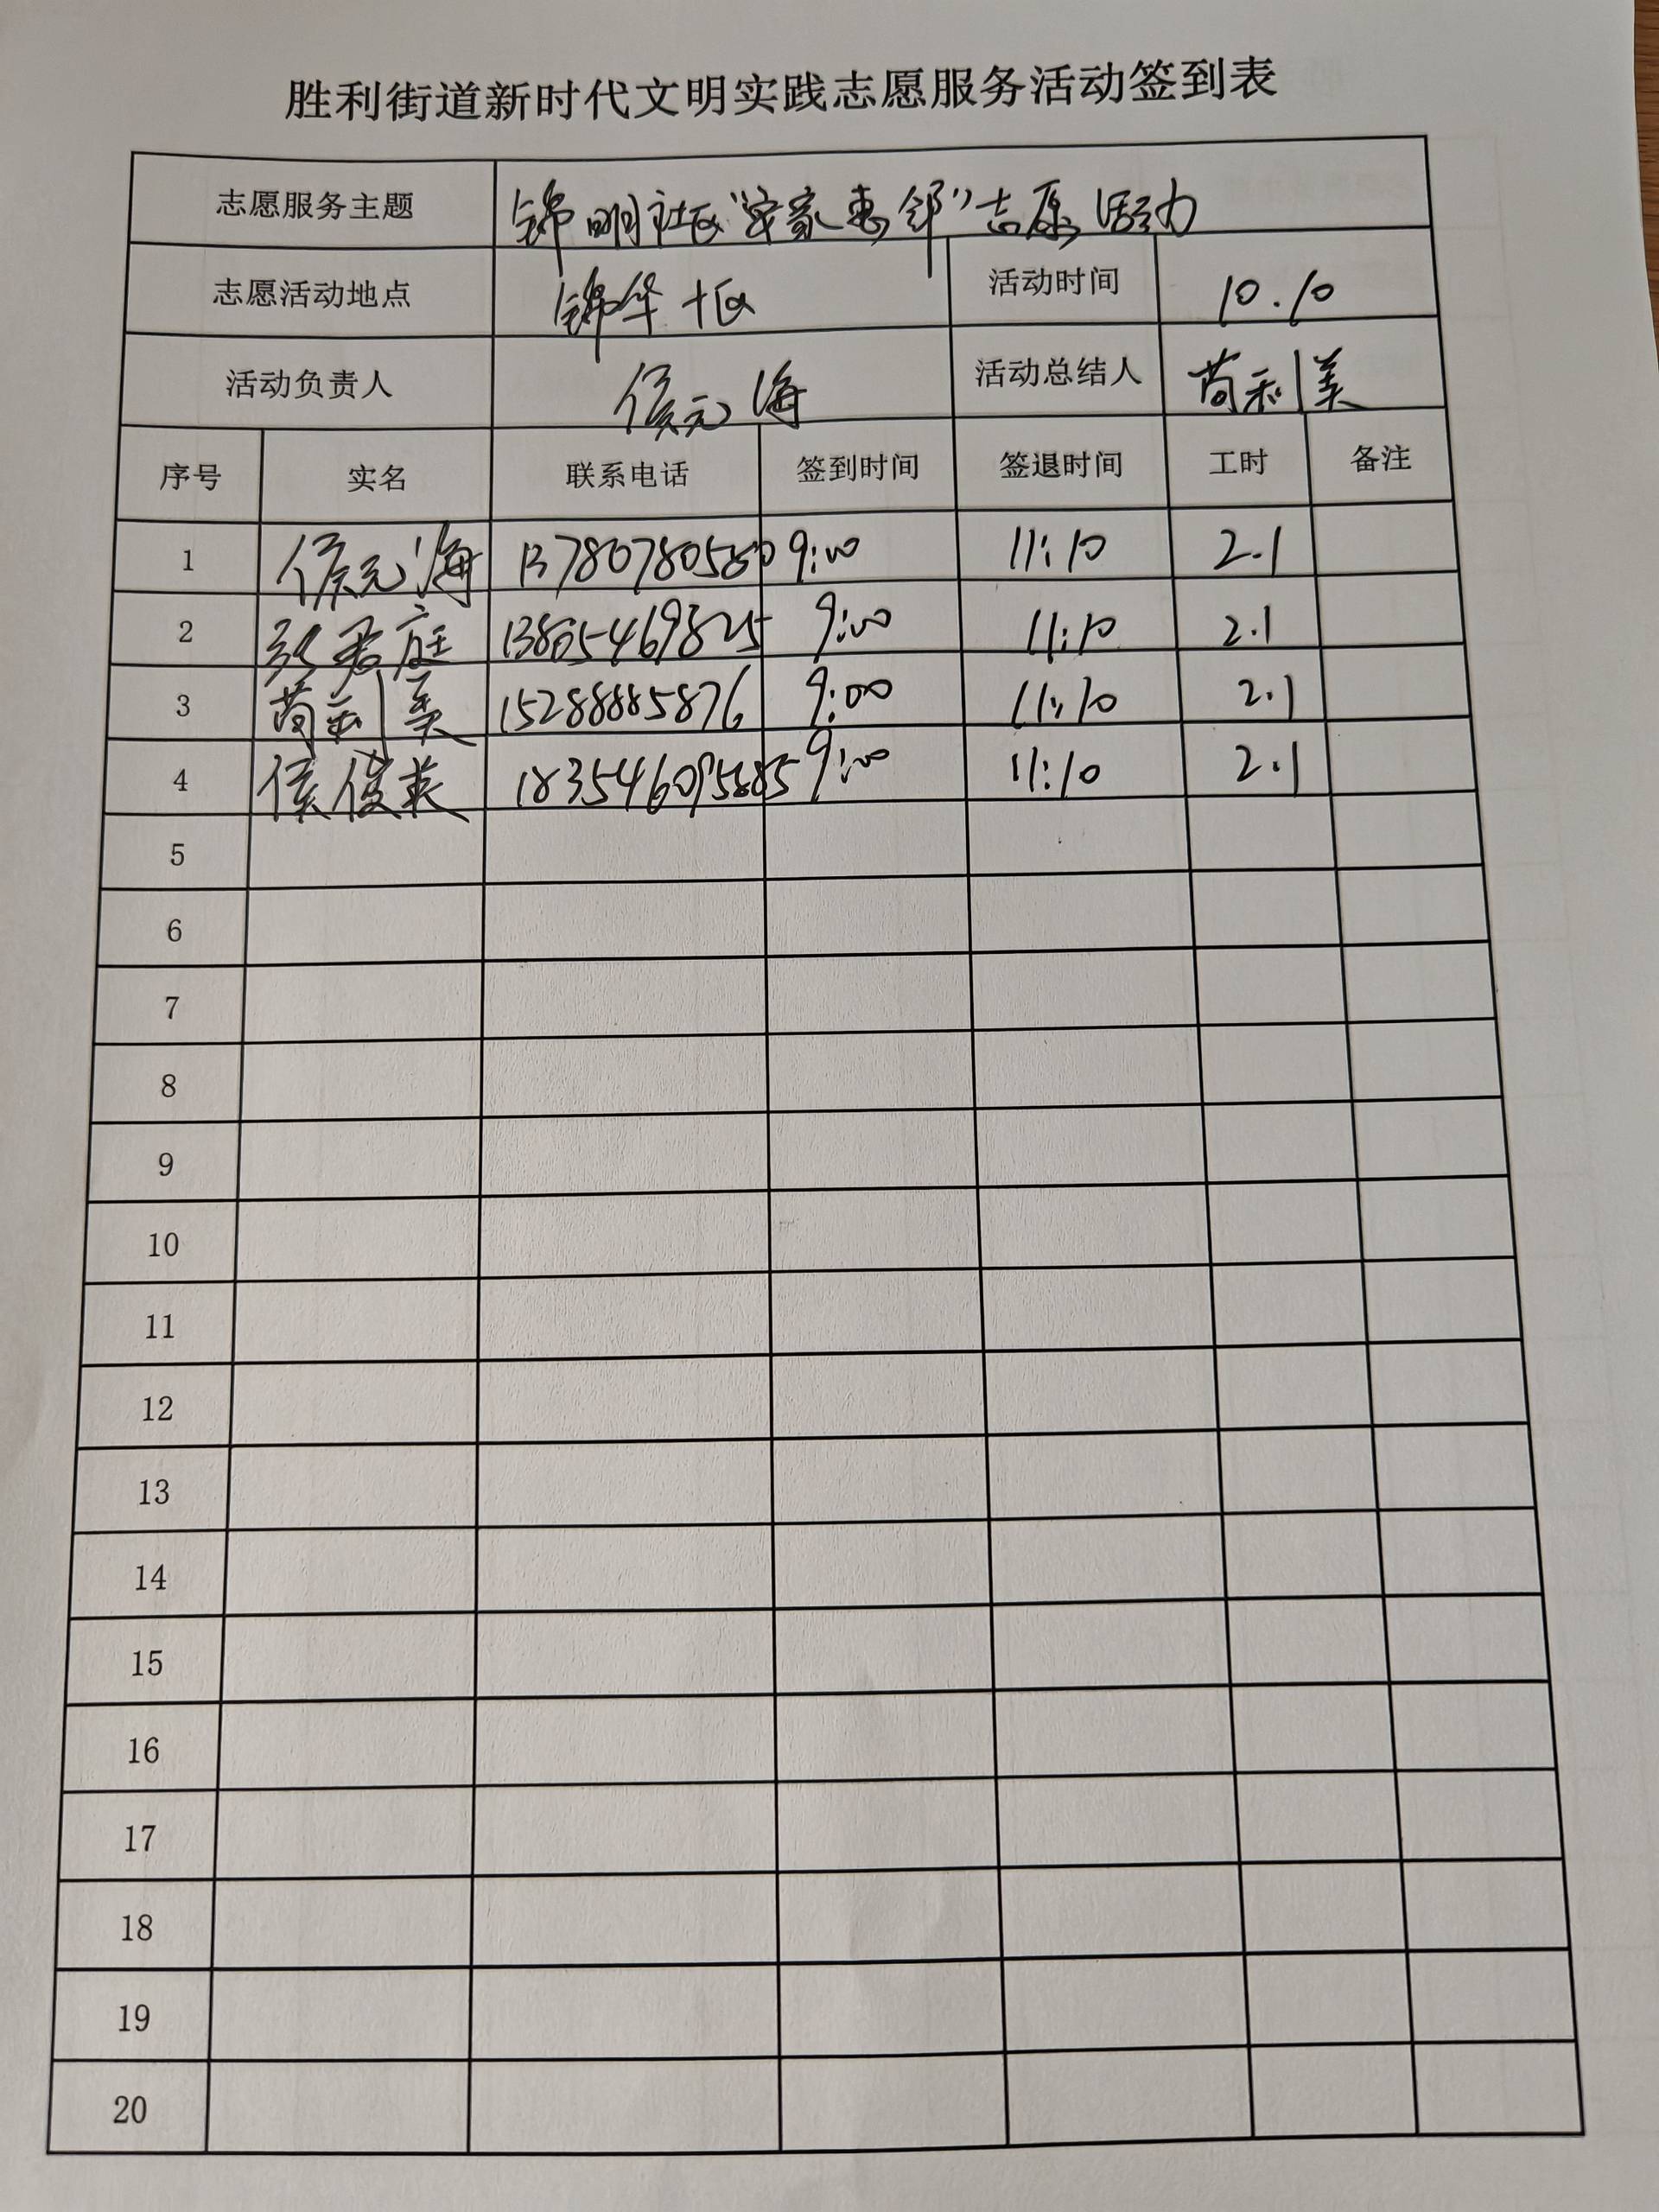 胜利街道新时代文明实践志愿服务活动签到表
志愿服务主题 锦明社区“安家惠邻”志愿活动
志愿活动地点 锦华十区 活动时间 10.10
活动负责人 侯元海 活动总结人 苘利美
序号 实名 联系电话 签到时间 签退时间 工时 备注
1 侯元海 13780780580 9:00 11:10 2.1
2 君庭 13805469825 9:00 11:10 2.1
3 苘利美 15288885876 9:00 11:10 2.1
4 侯俊英 9:00 11:10 2.1
5
6
7
8
9
10
11
12
13
14
15
16
17
18
19
20